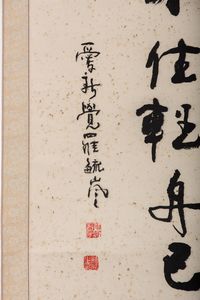 住輕舟已
愛新覺羅毓嵐